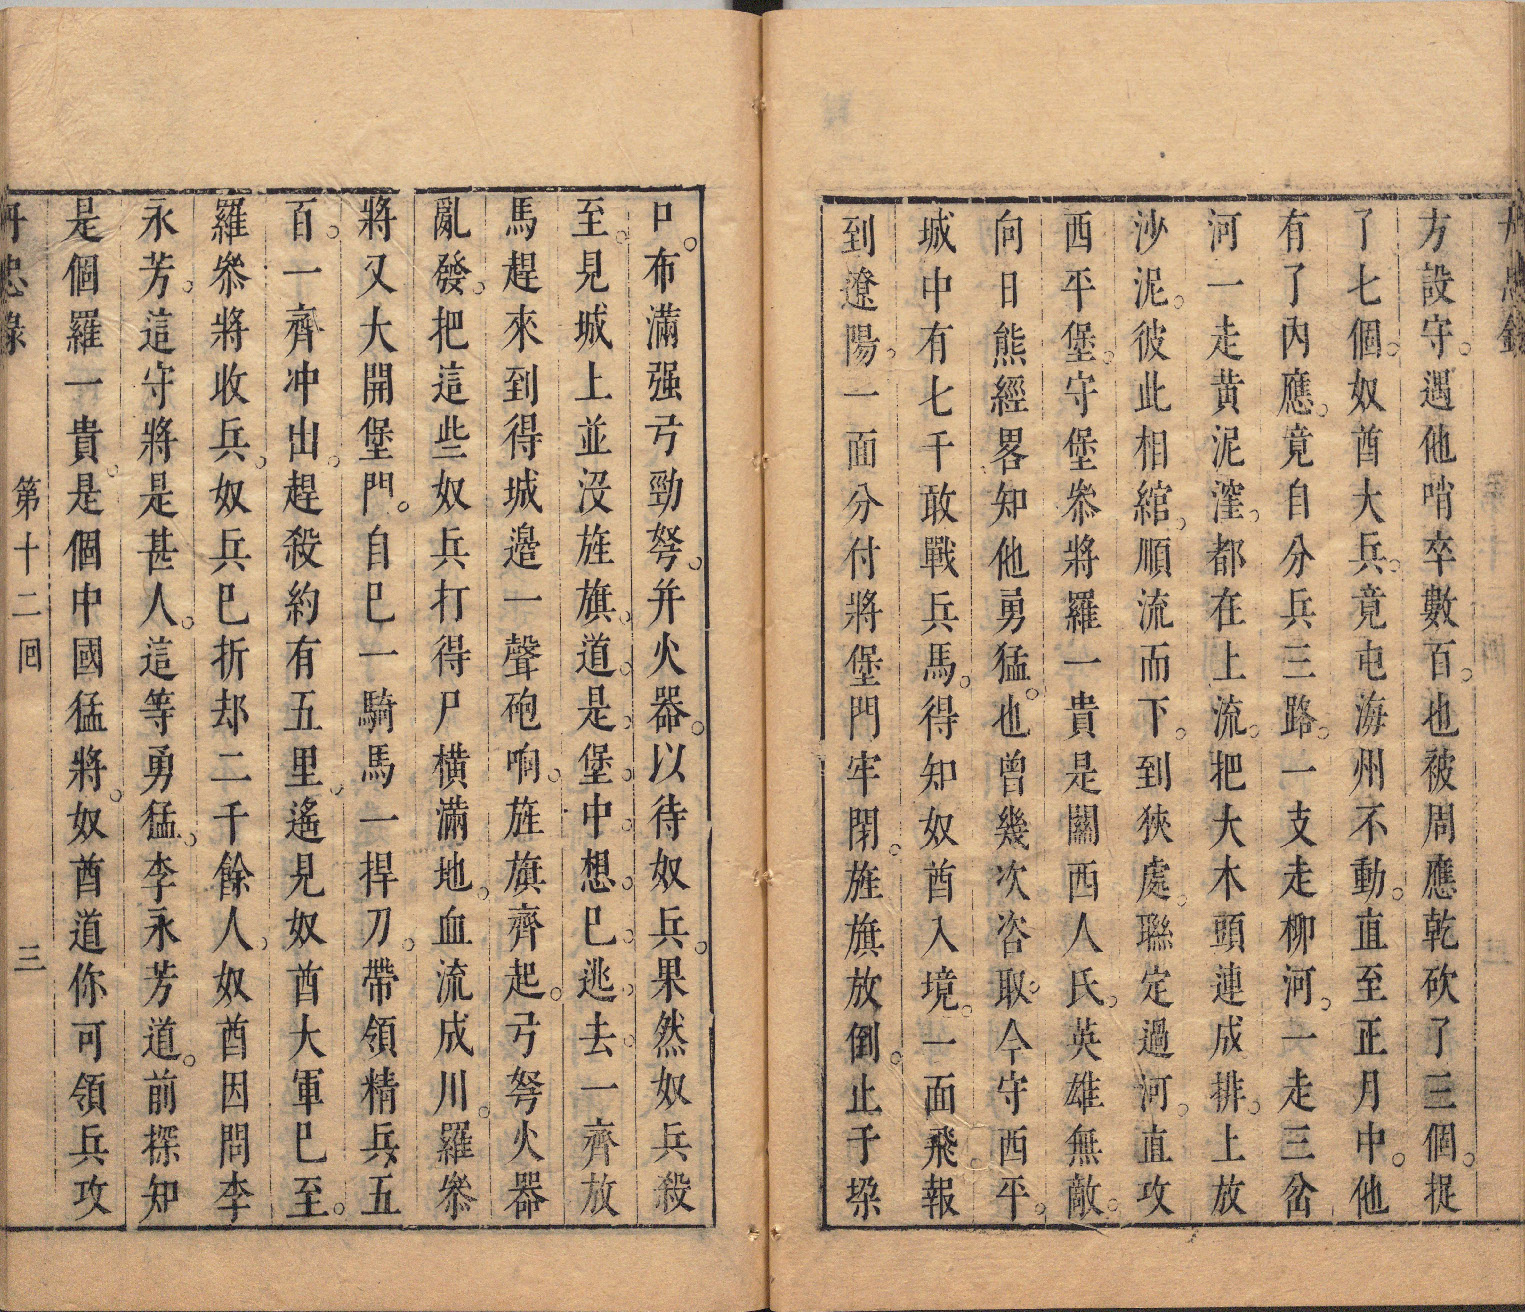 方設守。遇他哨卒數百。也被周應乾砍了三個。捉
了七個。奴酋大兵。竟屯海州不動。直至正月中。他
有了內應。竟自分兵三路。一支走柳河。一走三岔
河一走黃泥漥。都在上流。把大木頭連成排。上放
沙泥。彼此相綰。順流而下。到狹處。聯定過河。直攻
西平堡。守堡叅將羅一貴是關西人氏。英雄無敵。
向日熊經畧知他勇猛。也曾幾次咨取。今守西平。
城中有七千敢戰兵馬。得知奴酋入境。一面飛報
到遼陽。一面分付將堡門牢閉。旌旗放倒。止于垜
口。布滿强弓勁弩。并火器。以待奴兵。果然奴兵殺
至。見城上並沒旌旗。道。是。堡。中。想。已。逃。去。一齊放
馬趕來到得城邉一聲砲响。旌旗齊起。弓弩火器
亂發。把這些奴兵打得尸橫滿地。血流成川。羅叅
將又大開堡門。自已一騎馬一捍刀。帶領精兵五
百。一齊冲出。趕殺約有五里。遙見奴酋大軍已至。
羅叅將收兵。奴兵已折却二千餘人。奴酋因問李
永芳。這守將是甚人。這等勇猛。李永芳道。前探知
是個羅一貴。是個中國猛將。奴酋道你可領兵攻
丹忠錄
第十二回
三